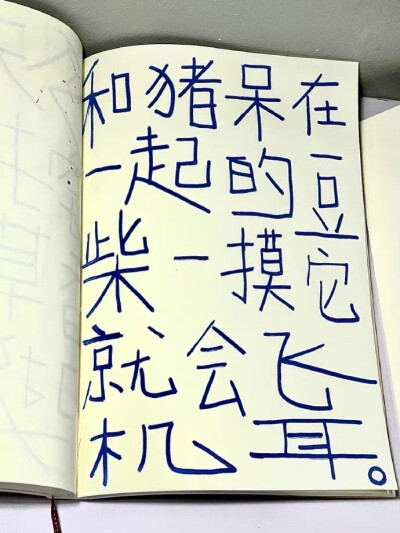 和猪呆在
一起的豆
柴一摸它
就会飞
机耳。